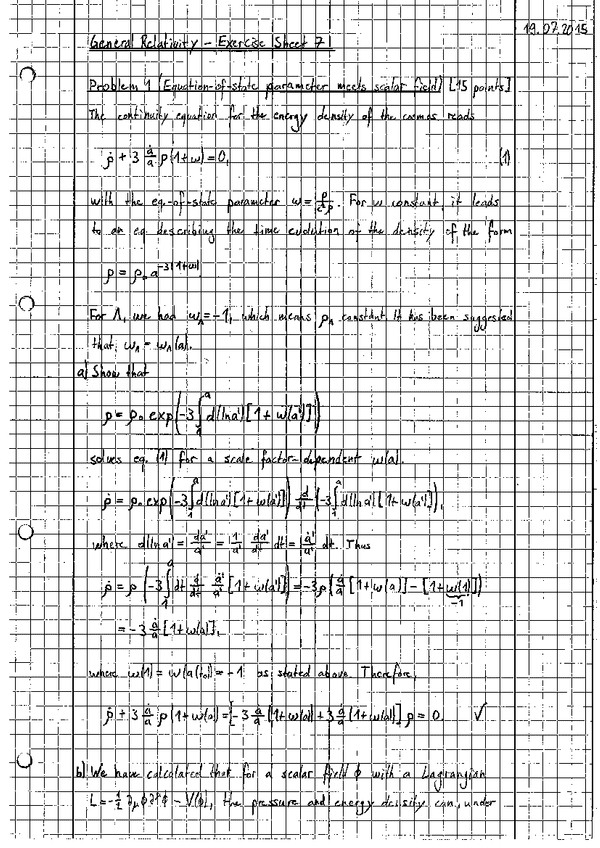 19.07.2015
General Relativity – Exercise Sheet 7
Problem 1 (Equation-of-state parameter meets scalar field) [15 points]
The continuity equation for the energy density of the cosmos reads
ρ̇ + 3 ȧ/a ρ(1+ω) = 0, (1)
with the eq.-of-state parameter ω = p/(c²ρ). For ω constant, it leads
to an eq. describing the time evolution of the density of the form
ρ = ρ₀ a^(-3(1+ω)).
For Λ, we had ω_Λ = -1, which means ρ_Λ constant. It has been suggested
that, ω_Λ = ω_Λ(a).
a) Show that
ρ = ρ₀ exp(-3 ∫₁^a d(ln a') [1 + ω(a')])
solves eq. (1) for a scale factor-dependent ω(a).
ρ̇ = ρ₀ exp(-3 ∫₁^a d(ln a') [1+ω(a')]) d/dt (-3 ∫₁^a d(ln a') [1+ω(a')]),
where d(ln a') = da'/a' = 1/a' da'/dt dt = ȧ'/a' dt. Thus
ρ̇ = ρ (-3 ∫₁^a dt d/dt ȧ'/a' [1+ω(a')]) = -3ρ (ȧ/a [1+ω(a)] - [1+ω(1)]) -1
= -3 ȧ/a [1+ω(a)],
where ω(1) = ω(a(t₀)) = -1 as stated above. Therefore,
ρ̇ + 3 ȧ/a ρ(1+ω(a)) = [-3 ȧ/a (1+ω(a)) + 3 ȧ/a (1+ω(a))] ρ = 0. ✓
b) We have calculated that for a scalar field ϕ with a Lagrangian
L = -1/2 ∂_μϕ∂^μϕ - V(ϕ), the pressure and energy density can, under